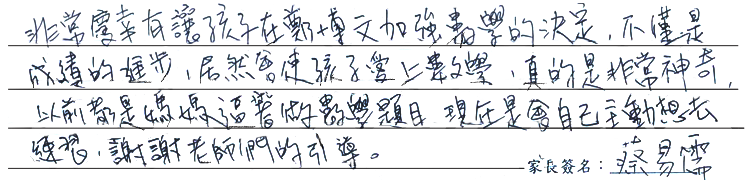 非常慶幸有讓孩子在鄭博文加強數學的決定，不僅是
成績的進步，居然會使孩子愛上數學，真的是非常神奇，
以前都是媽媽逼著做數學題目，現在是會自己主動想去
練習，謝謝老師們的引導。
家長簽名：蔡易儒